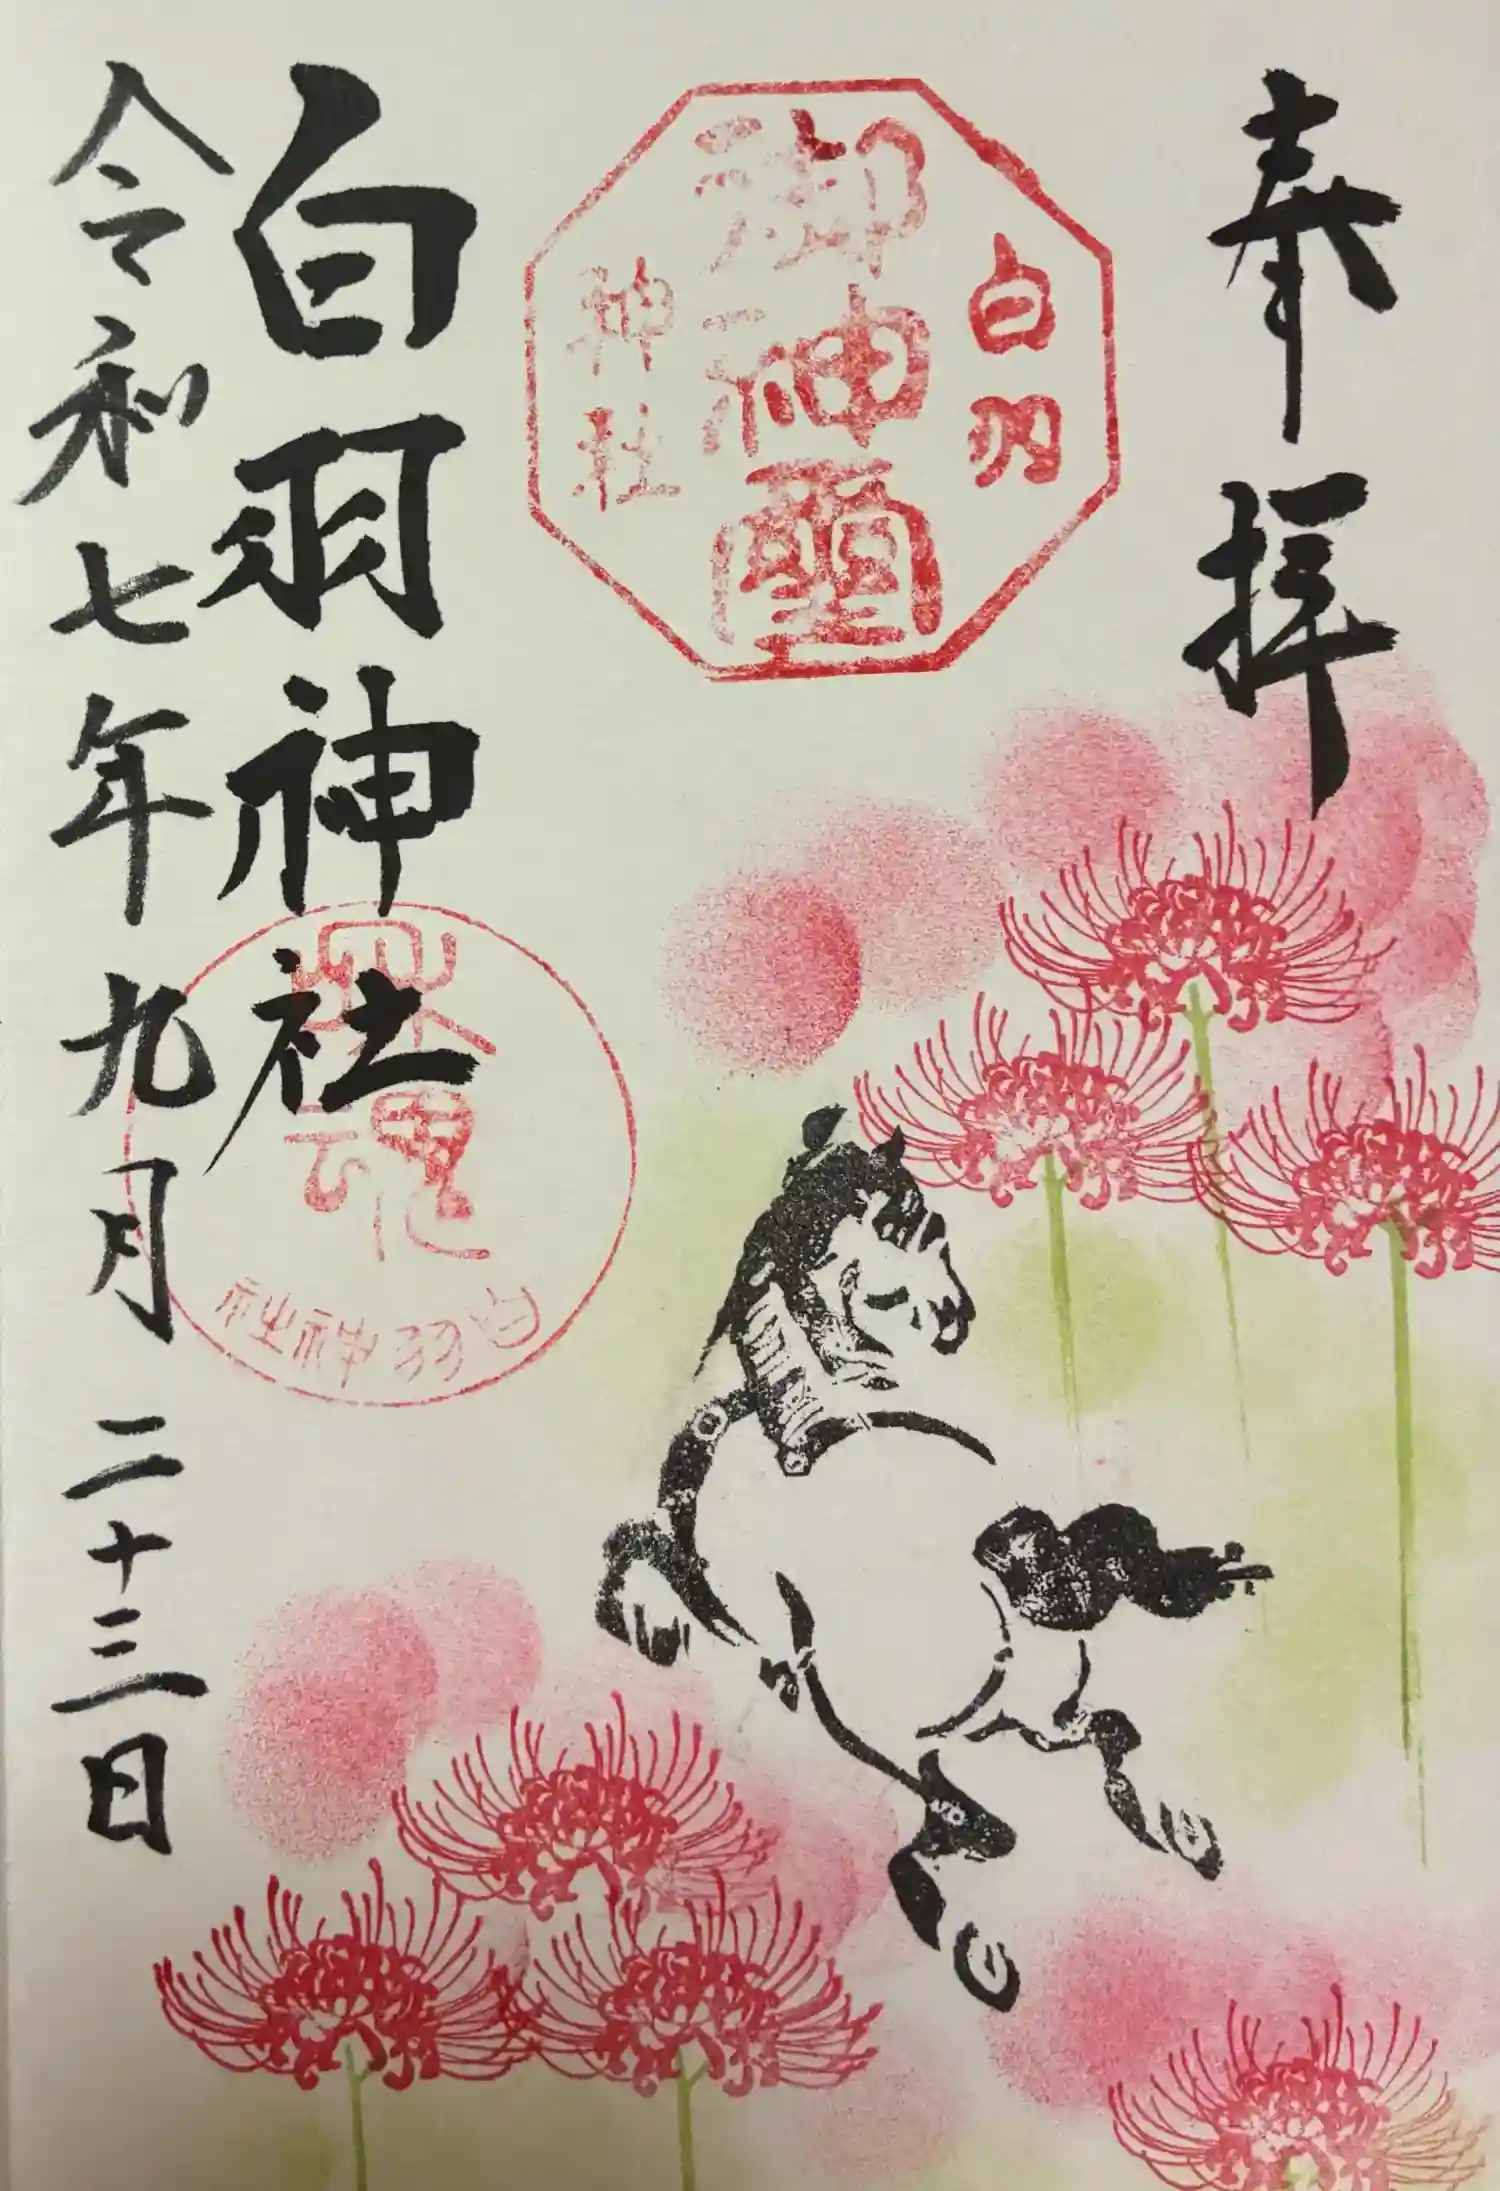 奉拝
白羽
御神璽
神社
白羽神社
白羽神社
令和七年九月二十三日